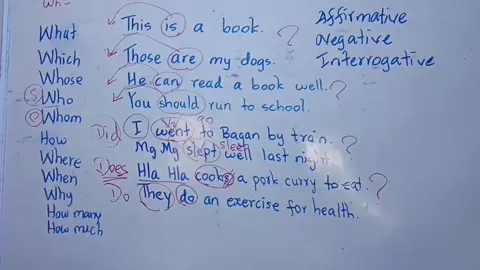 Wh-
What
Which
Whose
Who
Whom
How
Where
When
Why
How many
How much
S
O
This is a book. ?
Those are my dogs.
He can read a book well. ?
You should run to school.
Did I went to Bagan by train. ?
V2 go
Mg Mg slept well last night.
sleep
Does Hla Hla cooks a pork curry to eat. ?
Do They do an exercise for health.
Affirmative
Negative
Interrogative